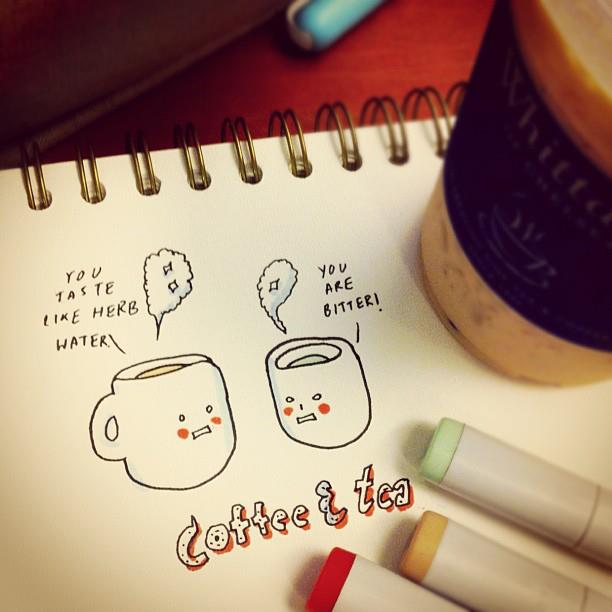 YOU
TASTE
LIKE HERB
WATER!
YOU
ARE
BITTER!
Coffee & tea